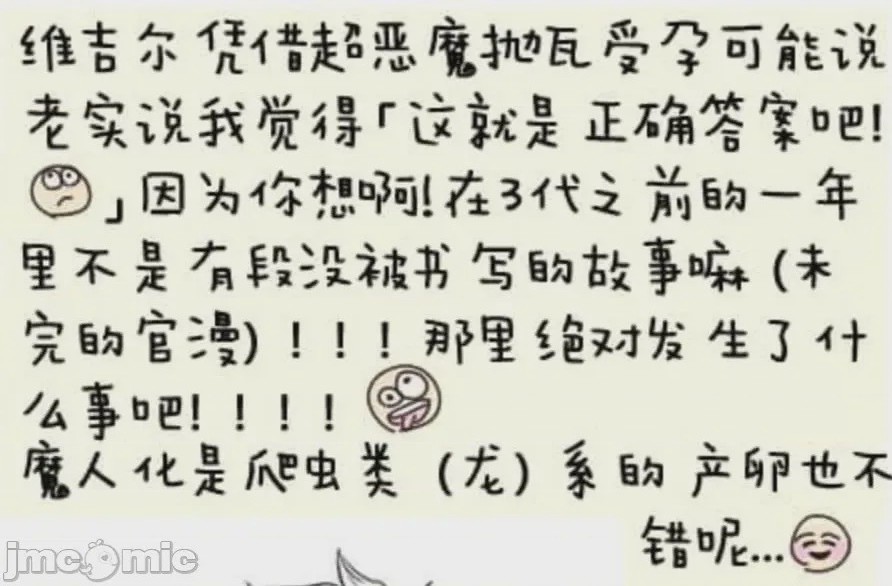 维吉尔凭借超恶魔抛瓦受孕可能说
老实说我觉得「这就是正确答案吧!
」因为你想啊!在3代之前的一年
里不是有段没被书写的故事嘛(未
完的官漫)!!!那里绝对发生了什
么事吧!!!!
魔人化是爬虫类(龙)系的产卵也不
错呢...
jmcomic